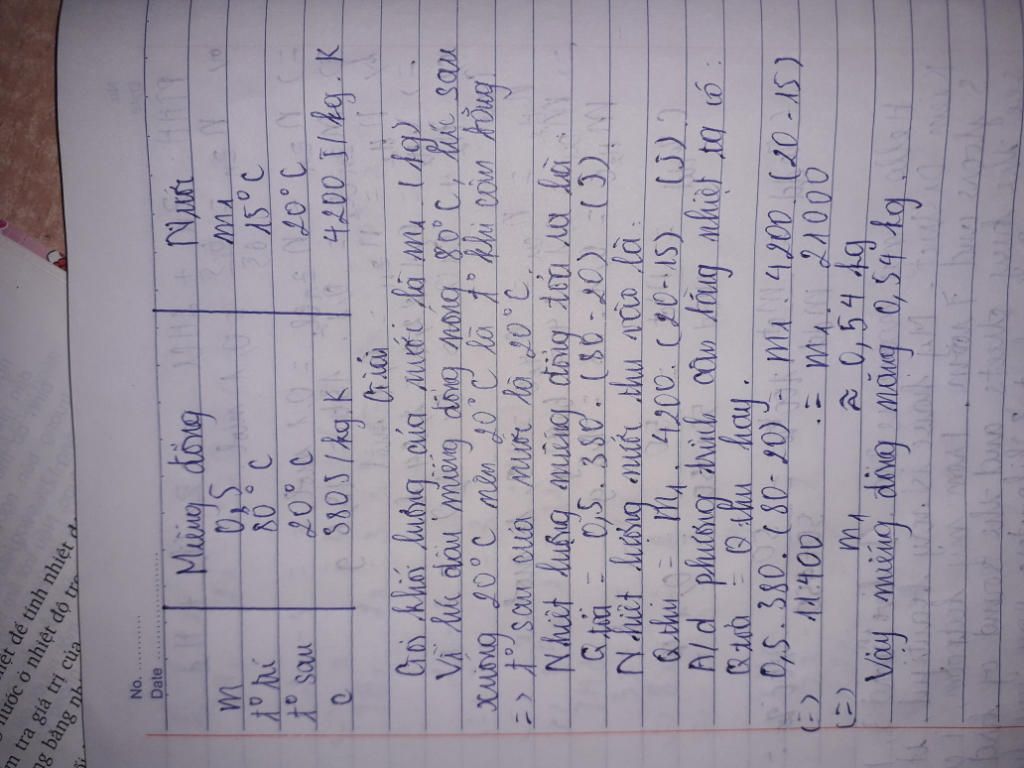 No.
Date
Miếng đồng Nước
m 0,5 m₁
t° bđ 80° C 15° C
t° sau 20° C 20° C
c 380 J/kg.K 4200 J/kg.K
Giải
Gọi khối lượng của nước là m₁ (kg)
Vì lúc đầu miếng đồng nóng 80° C, lúc sau
xuống 20° C nên 20° C là t° khi cân bằng
=> t° sau của nước là 20° C
Nhiệt lượng miếng đồng tỏa ra là:
Q tỏa = 0,5. 380. (80 - 20) (J)
Nhiệt lượng nước thu vào là:
Q thu = m₁. 4200. (20 - 15) (J)
A/d phương trình cân bằng nhiệt ta có:
Q tỏa = Q thu hay
0,5. 380. (80 - 20) = m₁. 4200. (20 - 15)
(=) 11400 = m₁ 21000
(=) m₁ ≈ 0,54 kg
Vậy miếng đồng nặng 0,54 kg.
iệt để tính nhiệt đ
nước ở nhiệt độ tro
m tra giá trị của
ng bằng nh